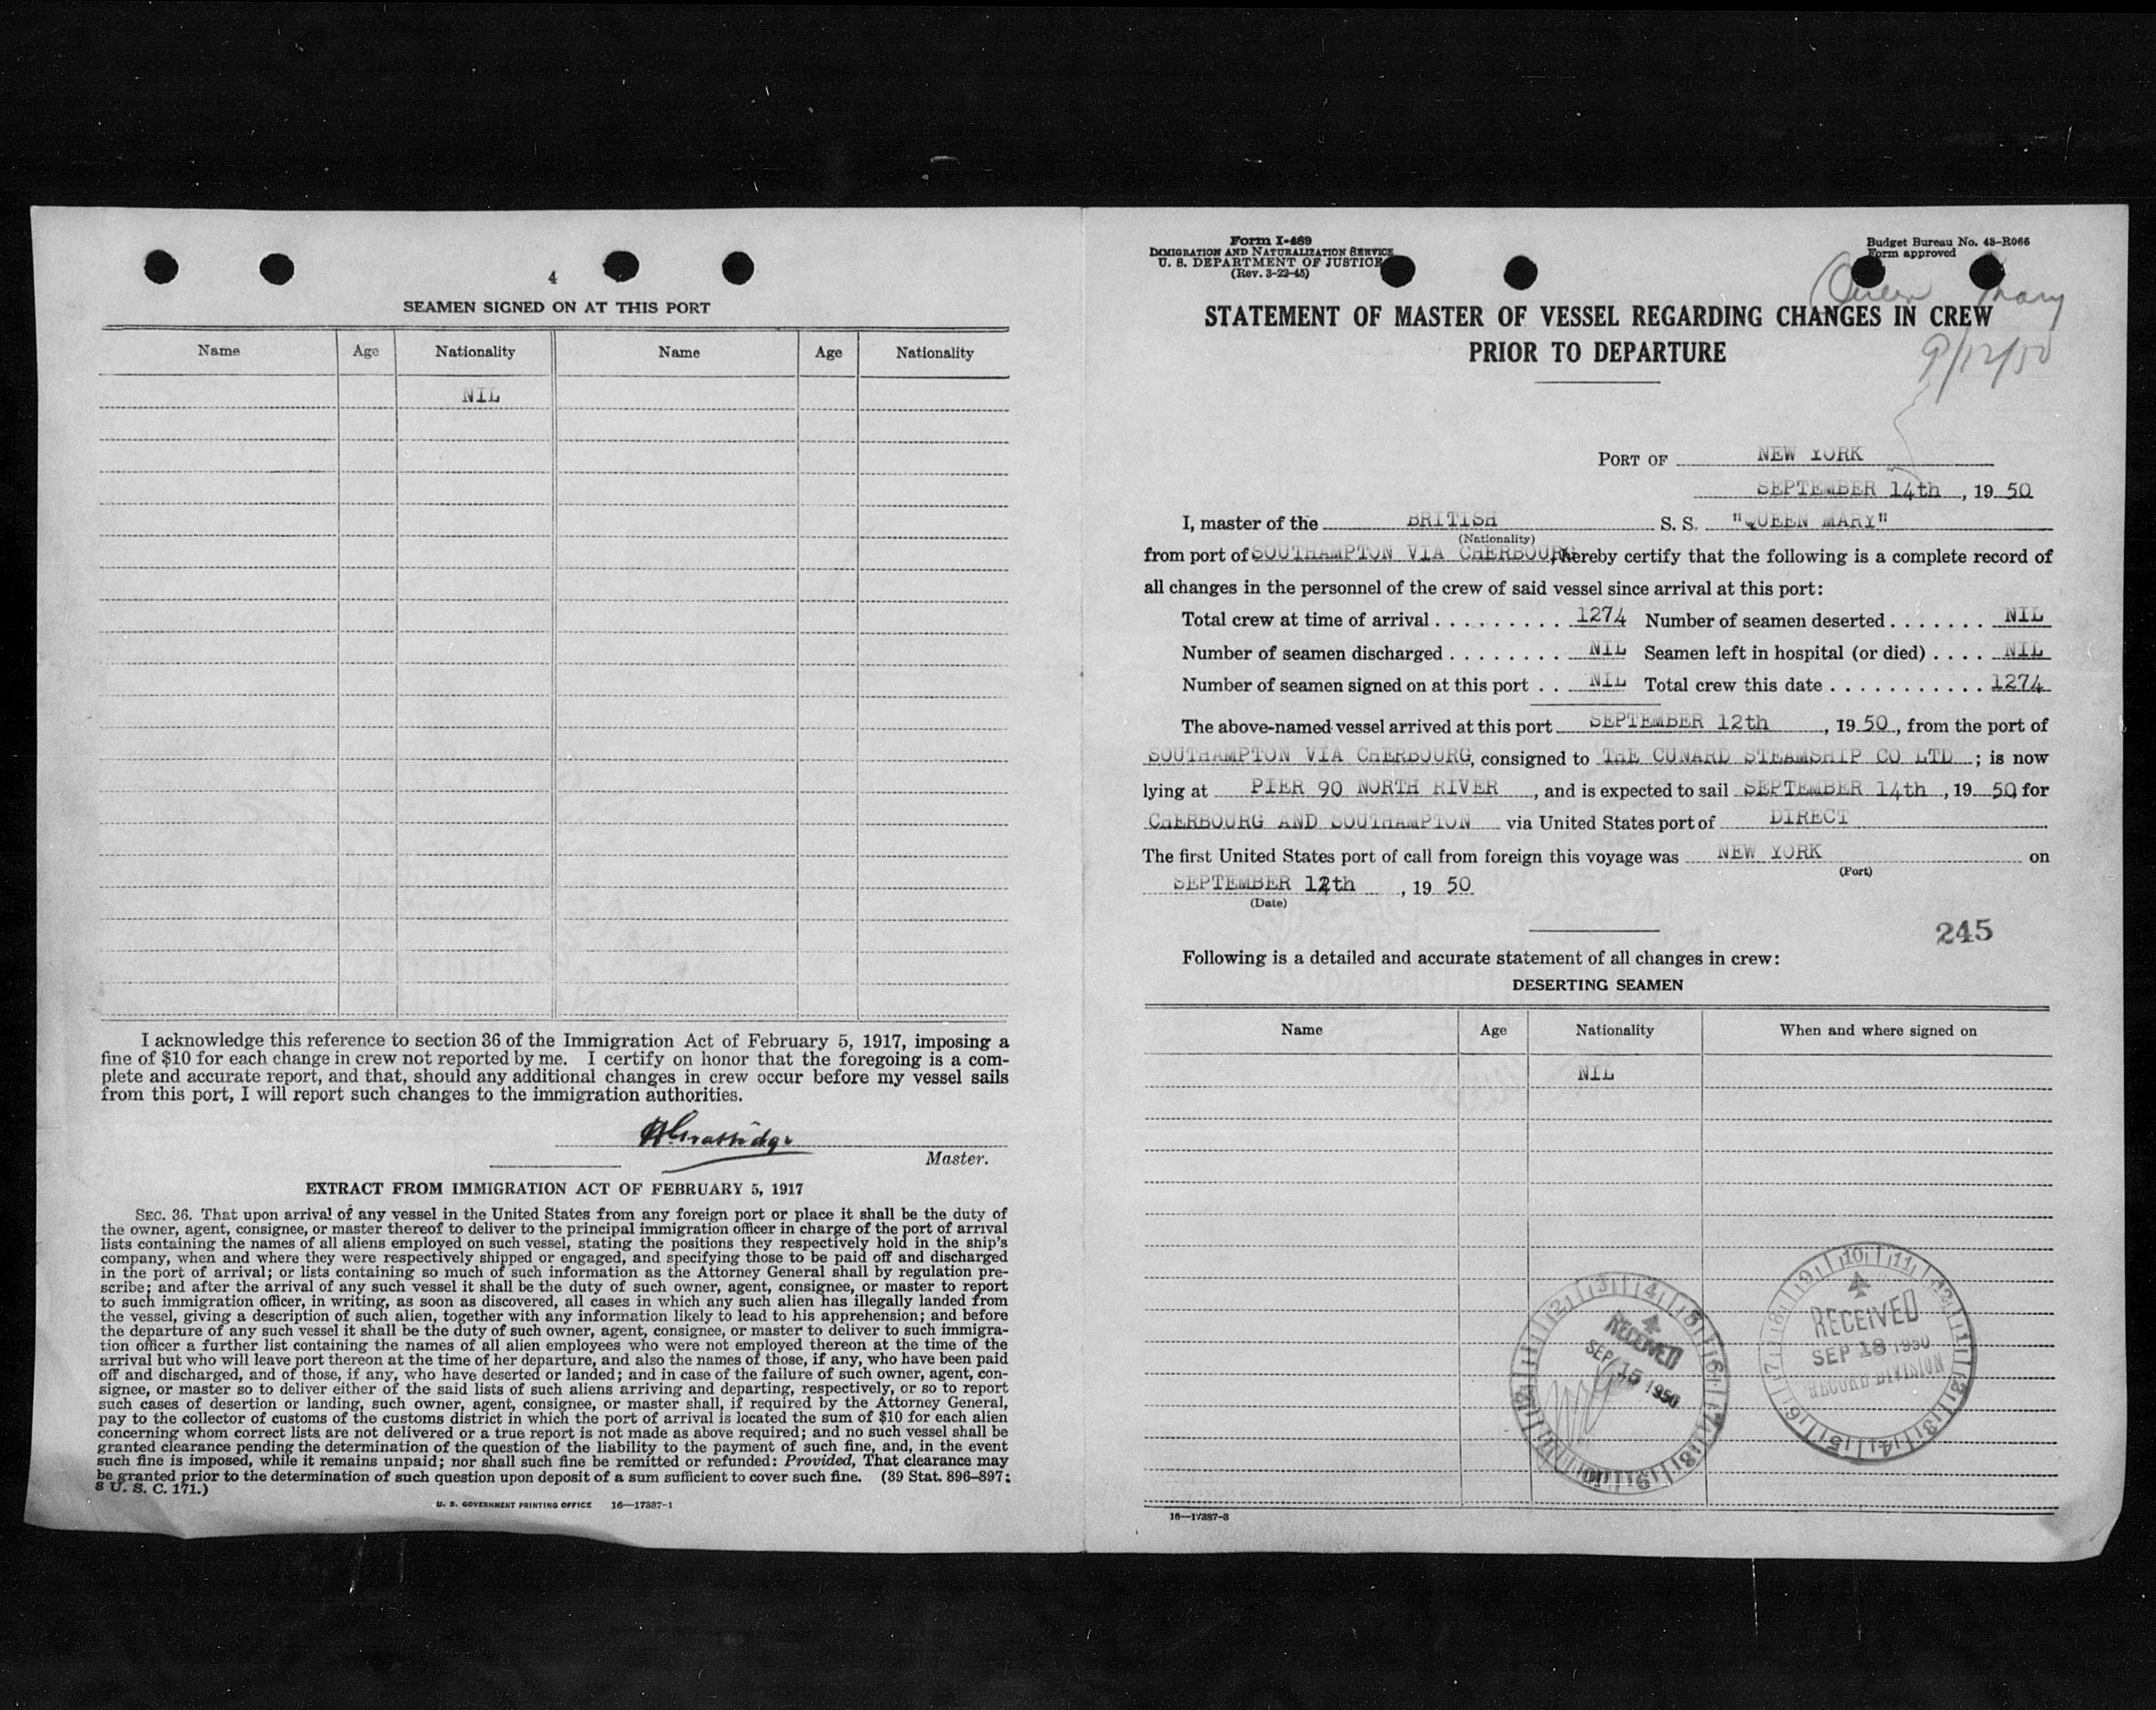 4
SEAMEN SIGNED ON AT THIS PORT
Name Age Nationality Name Age Nationality
NIL
I acknowledge this reference to section 36 of the Immigration Act of February 5, 1917, imposing a
fine of $10 for each change in crew not reported by me. I certify on honor that the foregoing is a com-
plete and accurate report, and that, should any additional changes in crew occur before my vessel sails
from this port, I will report such changes to the immigration authorities.
Master.
EXTRACT FROM IMMIGRATION ACT OF FEBRUARY 5, 1917
SEC. 36. That upon arrival of any vessel in the United States from any foreign port or place it shall be the duty of
the owner, agent, consignee, or master thereof to deliver to the principal immigration officer in charge of the port of arrival
lists containing the names of all aliens employed on such vessel, stating the positions they respectively hold in the ship's
company, when and where they were respectively shipped or engaged, and specifying those to be paid off and discharged
in the port of arrival; or lists containing so much of such information as the Attorney General shall by regulation pre-
scribe; and after the arrival of any such vessel it shall be the duty of such owner, agent, consignee, or master to report
to such immigration officer, in writing, as soon as discovered, all cases in which any such alien has illegally landed from
the vessel, giving a description of such alien, together with any information likely to lead to his apprehension; and before
the departure of any such vessel it shall be the duty of such owner, agent, consignee, or master to deliver to such immigra-
tion officer a further list containing the names of all alien employees who were not employed thereon at the time of the
arrival but who will leave port thereon at the time of her departure, and also the names of those, if any, who have been paid
off and discharged, and of those, if any, who have deserted or landed; and in case of the failure of such owner, agent, con-
signee, or master so to deliver either of the said lists of such aliens arriving and departing, respectively, or so to report
such cases of desertion or landing, such owner, agent, consignee, or master shall, if required by the Attorney General,
pay to the collector of customs of the customs district in which the port of arrival is located the sum of $10 for each alien
concerning whom correct lists are not delivered or a true report is not made as above required; and no such vessel shall be
granted clearance pending the determination of the question of the liability to the payment of such fine, and, in the event
such fine is imposed, while it remains unpaid; nor shall such fine be remitted or refunded: Provided, That clearance may
be granted prior to the determination of such question upon deposit of a sum sufficient to cover such fine. (39 Stat. 896–897;
8 U. S. C. 171.)
U. S. GOVERNMENT PRINTING OFFICE 16—17387-1
Form I-489
IMMIGRATION AND NATURALIZATION SERVICE
U. S. DEPARTMENT OF JUSTICE
(Rev. 3-22-45)
Budget Bureau No. 43-R066
Form approved
Queen Mary
9/12/50
STATEMENT OF MASTER OF VESSEL REGARDING CHANGES IN CREW
PRIOR TO DEPARTURE
PORT OF NEW YORK
SEPTEMBER 14th, 19 50
I, master of the BRITISH S. S. "QUEEN MARY"
(Nationality)
from port of SOUTHAMPTON VIA CHERBOURG, hereby certify that the following is a complete record of
all changes in the personnel of the crew of said vessel since arrival at this port:
Total crew at time of arrival . . . . . . . . . 1274 Number of seamen deserted . . . . . . . NIL
Number of seamen discharged . . . . . . . . NIL Seamen left in hospital (or died) . . . . NIL
Number of seamen signed on at this port . . NIL Total crew this date . . . . . . . . . . . . 1274
The above-named vessel arrived at this port SEPTEMBER 12th, 19 50, from the port of
SOUTHAMPTON VIA CHERBOURG, consigned to THE CUNARD STEAMSHIP CO LTD ; is now
lying at PIER 90 NORTH RIVER, and is expected to sail SEPTEMBER 14th, 19 50, for
CHERBOURG AND SOUTHAMPTON via United States port of DIRECT
The first United States port of call from foreign this voyage was NEW YORK on
(Port)
SEPTEMBER 12th, 19 50
(Date)
245
Following is a detailed and accurate statement of all changes in crew:
DESERTING SEAMEN
Name Age Nationality When and where signed on
NIL
RECEIVED
SEP 15 1950
RECEIVED
SEP 18 1950
RECORD DIVISION
16—17387-3